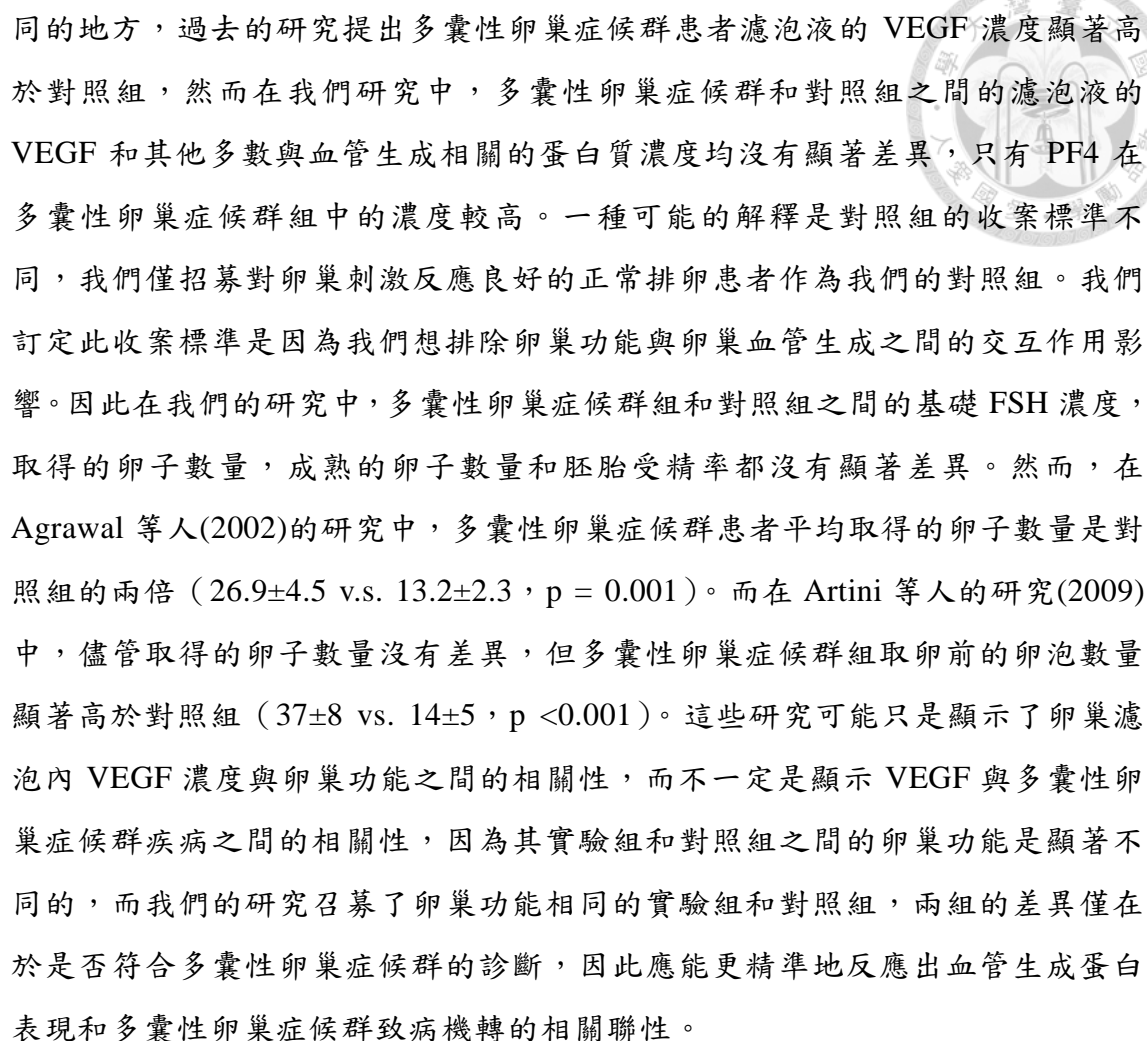 同的地方，過去的研究提出多囊性卵巢症候群患者濾泡液的 VEGF 濃度顯著高
於對照組，然而在我們研究中，多囊性卵巢症候群和對照組之間的濾泡液的
VEGF 和其他多數與血管生成相關的蛋白質濃度均沒有顯著差異，只有 PF4 在
多囊性卵巢症候群組中的濃度較高。一種可能的解釋是對照組的收案標準不
同，我們僅招募對卵巢刺激反應良好的正常排卵患者作為我們的對照組。我們
訂定此收案標準是因為我們想排除卵巢功能與卵巢血管生成之間的交互作用影
響。因此在我們的研究中，多囊性卵巢症候群組和對照組之間的基礎 FSH 濃度，
取得的卵子數量，成熟的卵子數量和胚胎受精率都沒有顯著差異。然而，在
Agrawal 等人(2002)的研究中，多囊性卵巢症候群患者平均取得的卵子數量是對
照組的兩倍（26.9±4.5 v.s. 13.2±2.3，p = 0.001）。而在 Artini 等人的研究(2009)
中，儘管取得的卵子數量沒有差異，但多囊性卵巢症候群組取卵前的卵泡數量
顯著高於對照組（37±8 vs. 14±5，p <0.001）。這些研究可能只是顯示了卵巢濾
泡內 VEGF 濃度與卵巢功能之間的相關性，而不一定是顯示 VEGF 與多囊性卵
巢症候群疾病之間的相關性，因為其實驗組和對照組之間的卵巢功能是顯著不
同的，而我們的研究召募了卵巢功能相同的實驗組和對照組，兩組的差異僅在
於是否符合多囊性卵巢症候群的診斷，因此應能更精準地反應出血管生成蛋白
表現和多囊性卵巢症候群致病機轉的相關聯性。